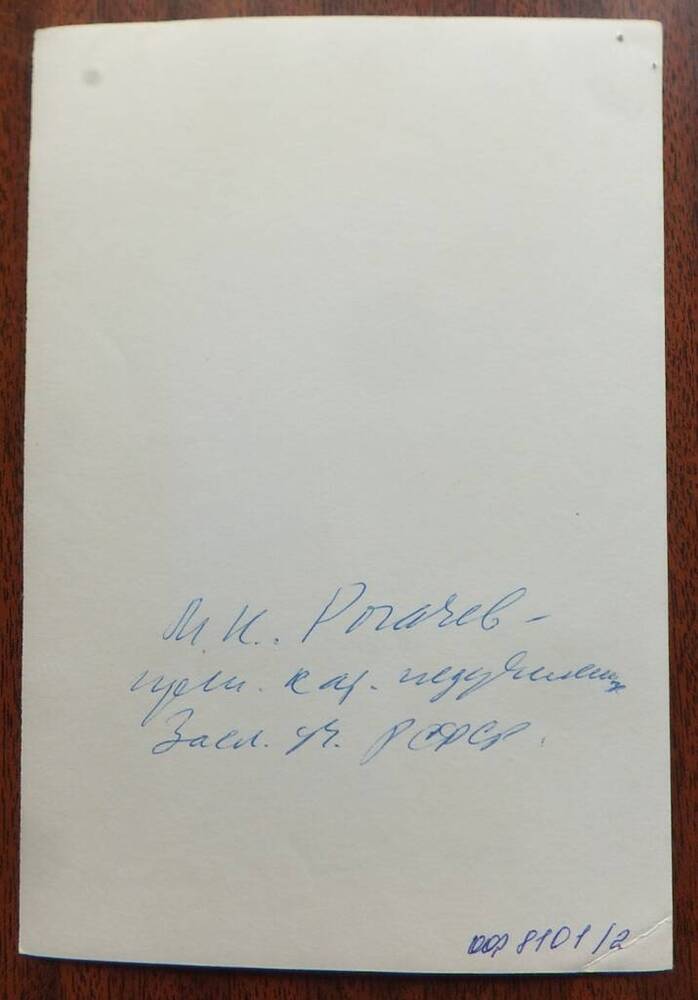 М. К. Рогачев –
преп. кар. педучилища
Засл. уч. РСФСР.
ОФ 8101/2